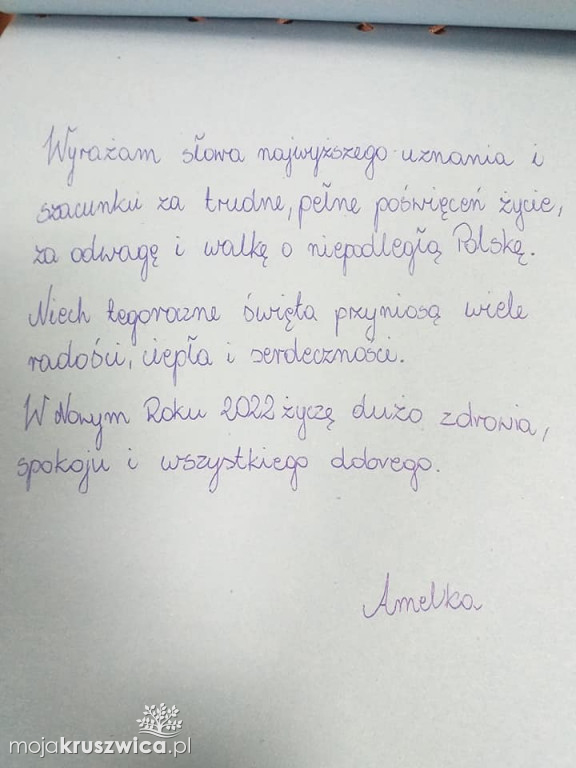 Wyrażam słowa najwyższego uznania i
szacunku za trudne, pełne poświęceń życie,
za odwagę i walkę o niepodległą Polskę.
Niech tegoroczne święta przyniosą wiele
radości, ciepła i serdeczności.
W Nowym Roku 2022 życzę dużo zdrowia,
spokoju i wszystkiego dobrego.
Amelka
mojakruszwica.pl